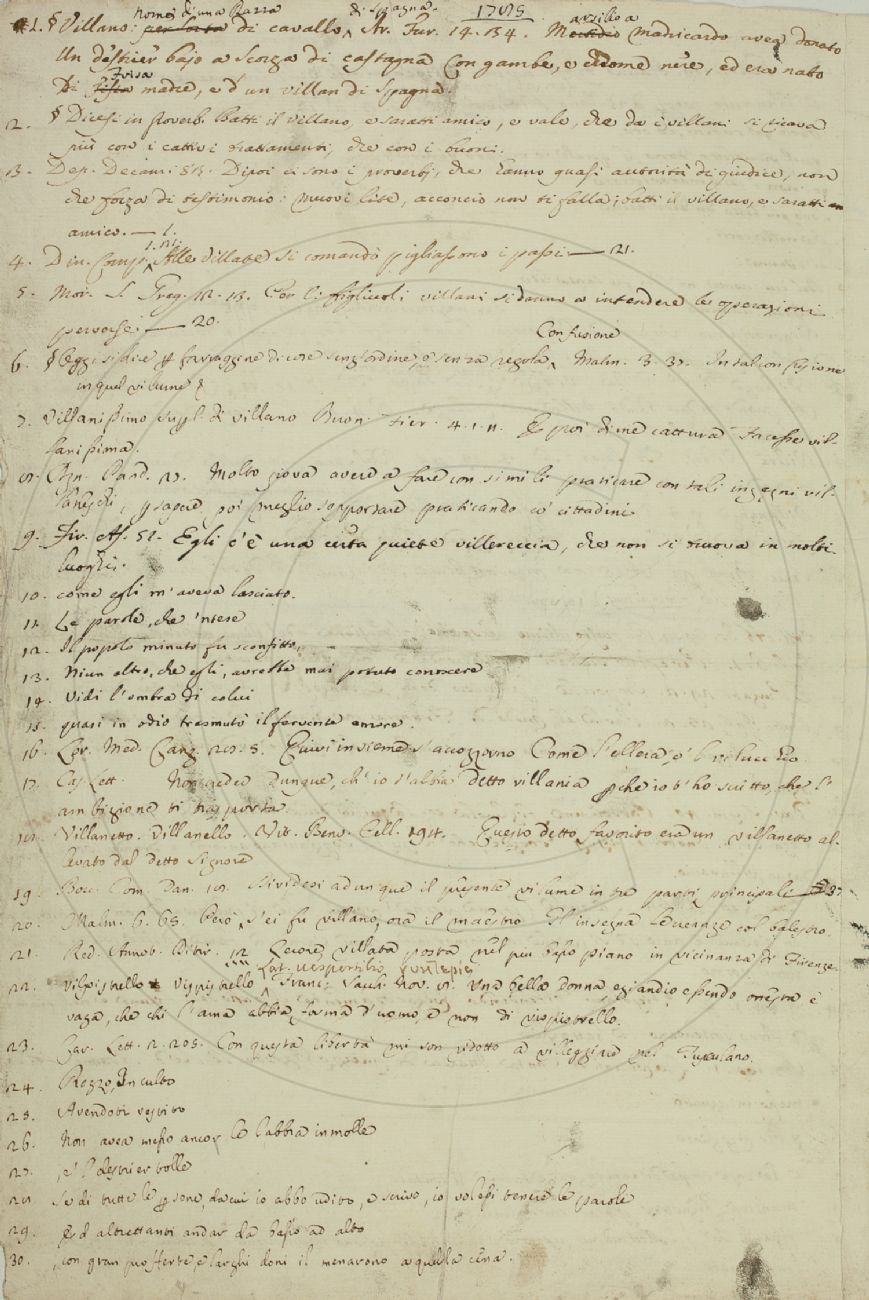 nome di una Razza di Spagna. 1705
1. § Villano: per sorta di cavallo, Ar. Fur. 14. 34. marsilio a Madricardo avea donato
Un destrier bajo a scorza di castagna Con gambe, e chiome nere, ed era nato
Di Frisa madre, e d'un villan di Spagna.
2. § Dicesi in proverb. Batti il villano, e saratti amico, e vale, che da i villani si ricava
più con i cattivi trattamenti, che con i buoni.
3. Dep. Decam. 83. Dipoi ci sono i proverbj, che hanno quasi autorità di giudice, non
che forza di testimonio: muovi lite, acconcio non ti falla; batti il villano, e saratti
amico. — 1.
4. Din. Comp. 1. Alle villate si comandò pigliassono i passi — 21.
5. Mor. S. Greg. Per li figliuoli villani si danno a intendere le operazioni
perverse. — 20.
6. § Oggi si dice farraggine di cose senz'ordine, e senza regola, Confusione Malm. 3. In tal confusione
in quel vilume
7. Villanissimo superl. di villano Buon. Fier. 4. 1. 11. E poi di me cattura Facesse vil-
lanissima.
8. Agn. Pand. Molto giova avere a fare con simili praticare con tali ingegni vil-
laneschi, meglio sopportare praticando co' cittadini
9. Fir. As. 52. Egli c'è una certa quiete villereccia, che non si truova in molti
luoghi.
10. come egli m'aveva lasciato.
11. Le parole, che 'ntese
12. Il popolo minuto fu sconfitto,
13. Niun altro, che egli, avrebbe mai potuto conoscere
14. Vidi l'ombra di colui
15. quasi in odio trasmutò il fervente amore.
16. Lor. Med. Canz. E vivi insieme s'accozzorno Come l'ellera, e 'l
17. Cas. Lett. Non creder dunque, ch' io t'abbia detto villania perchè io t'ho scritto, che l'
ambizione ti trasporta.
18. Villanetto. Villanello. Vit. Benv. Cell. Questo detto favorito era un villanetto al-
levato dal detto Signore
19. Bocc. Com. Dan. Dividesi adunque il presente vilume in tre parti principali
20. Malm. 6. 65. Però s'ei fu villano, ora il maestro Gl'insegna le creanze col balestro.
21. Red. Annot. Ditir. Lecore, villata posta nel più basso piano in vicinanza di Firenze.
22. Vilpistrello e Vispistrello Lat. vespertilio Franc. Sacch. Nov. Una bella donna, eziandio essendo onesta e
vaga, che chi l'ama abbia forma d'uomo, e non di vispistrello.
23. Car. Lett. 2. 205. Con questa libertà mi son ridotto a villeggiare nel Tusculano.
24. Rozzo, Inculto
25. Avendosi vestito
26. Non avea messo ancor le labbia in molle
27. e 'l destrier volle
28. Se di tutte le persone, da cui io abbo udito, e scrivo, io volessi tenere le parole
29. Ed altrettanti andar da basso ad alto
30. con gran profferte, e larghi doni il menarono a quella cena.